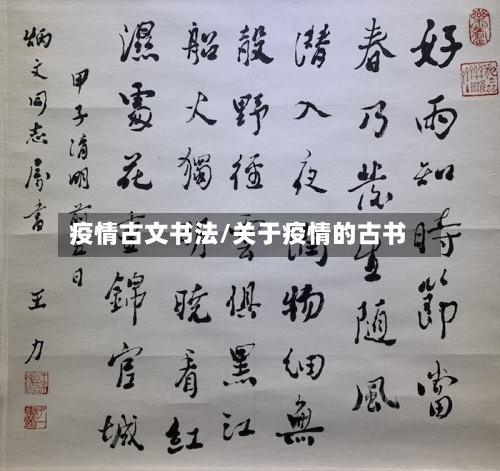 好雨知時節當
春乃發生隨風
潛入夜潤物細無
聲野徑雲俱黑江
船火獨明曉看紅
濕處花重錦官城
甲子清明前日
炳文同志属書 王力
疫情古文书法/关于疫情的古书